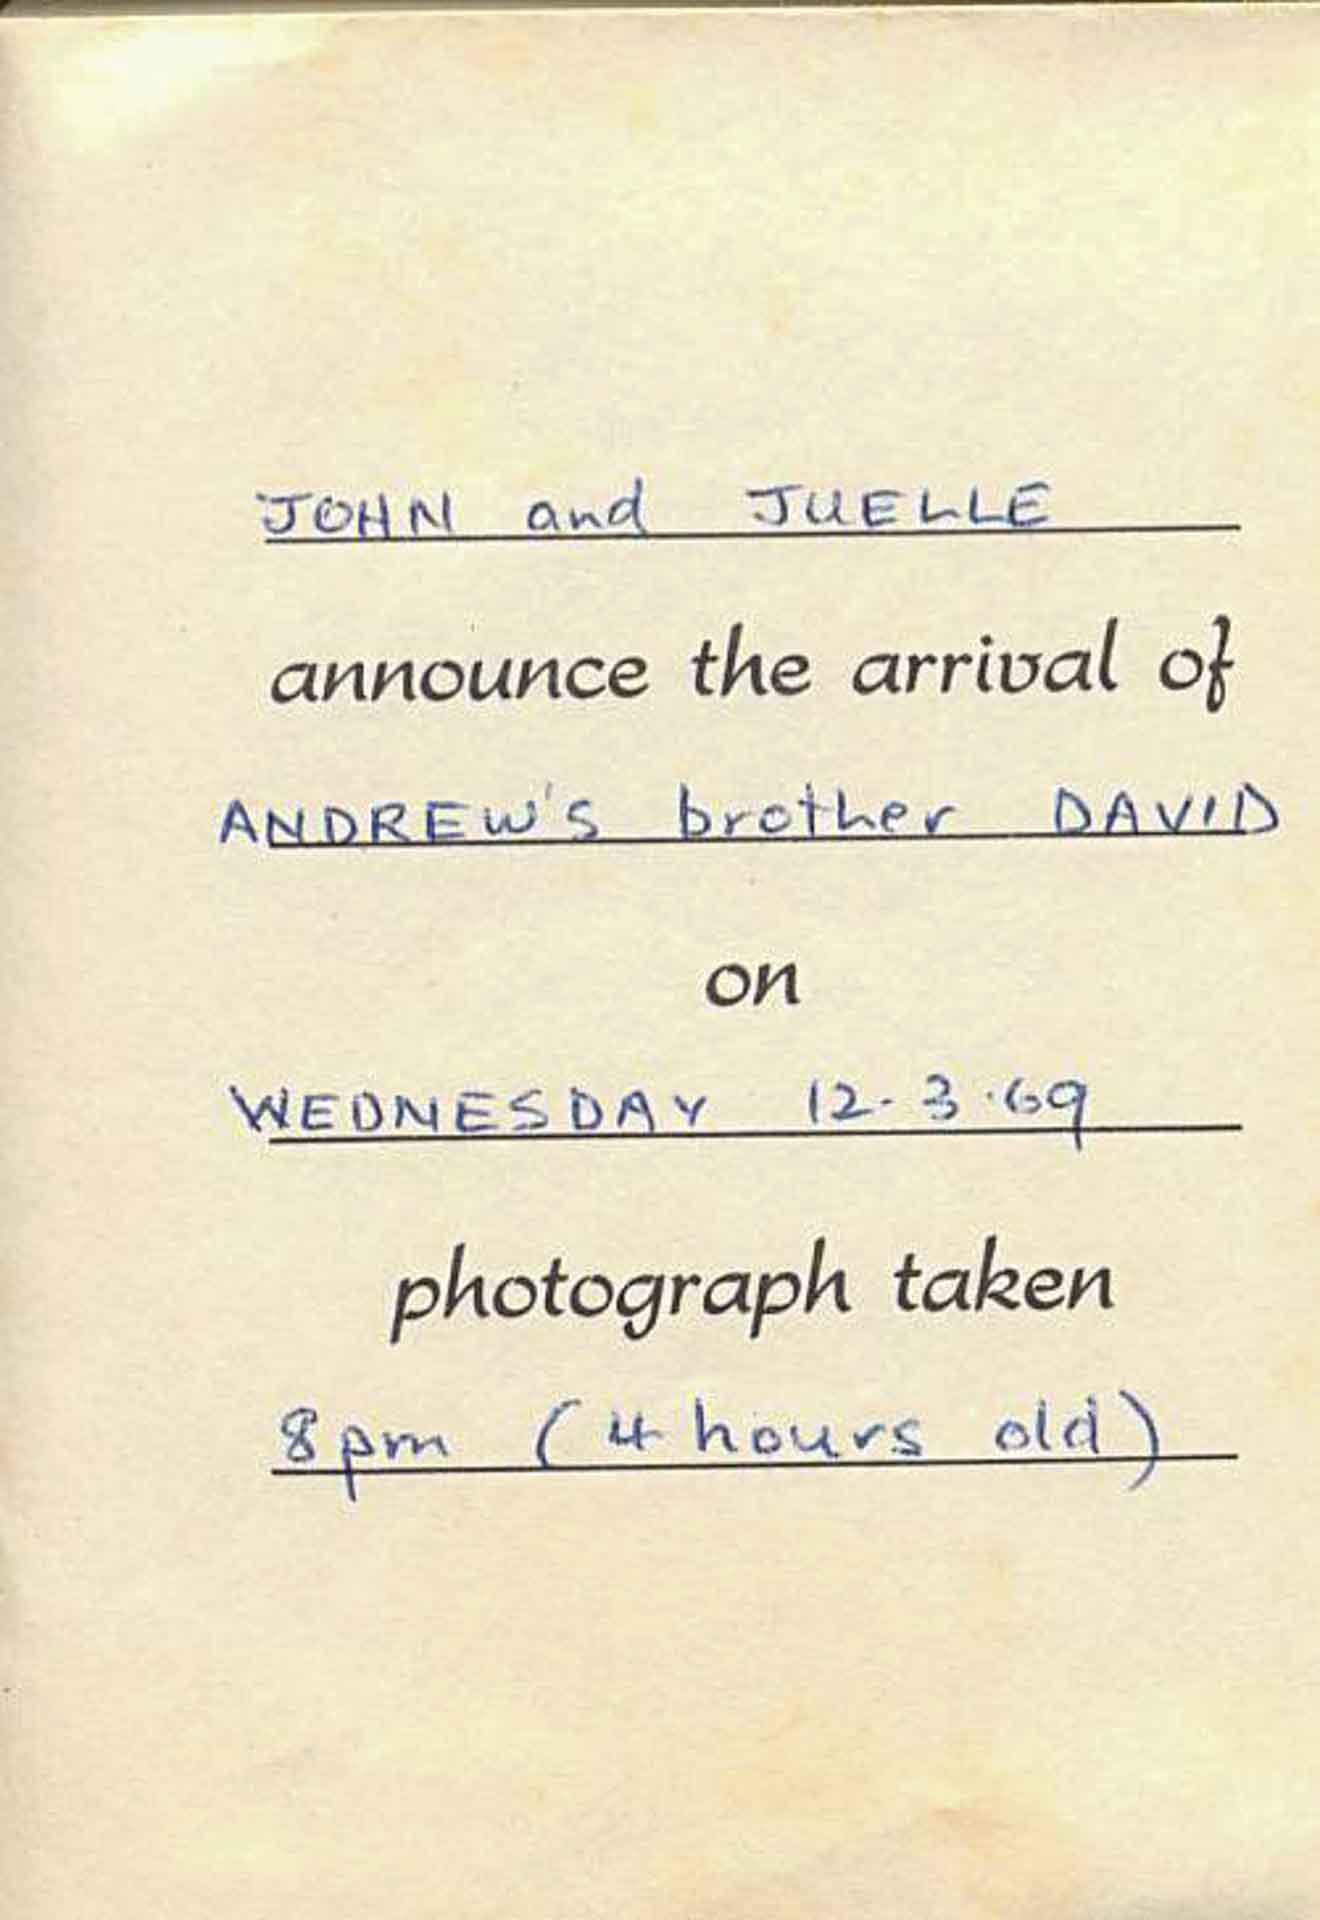 JOHN and JUELLE
announce the arrival of
ANDREW'S brother DAVID
on
WEDNESDAY 12.3.69
photograph taken
8pm (4 hours old)